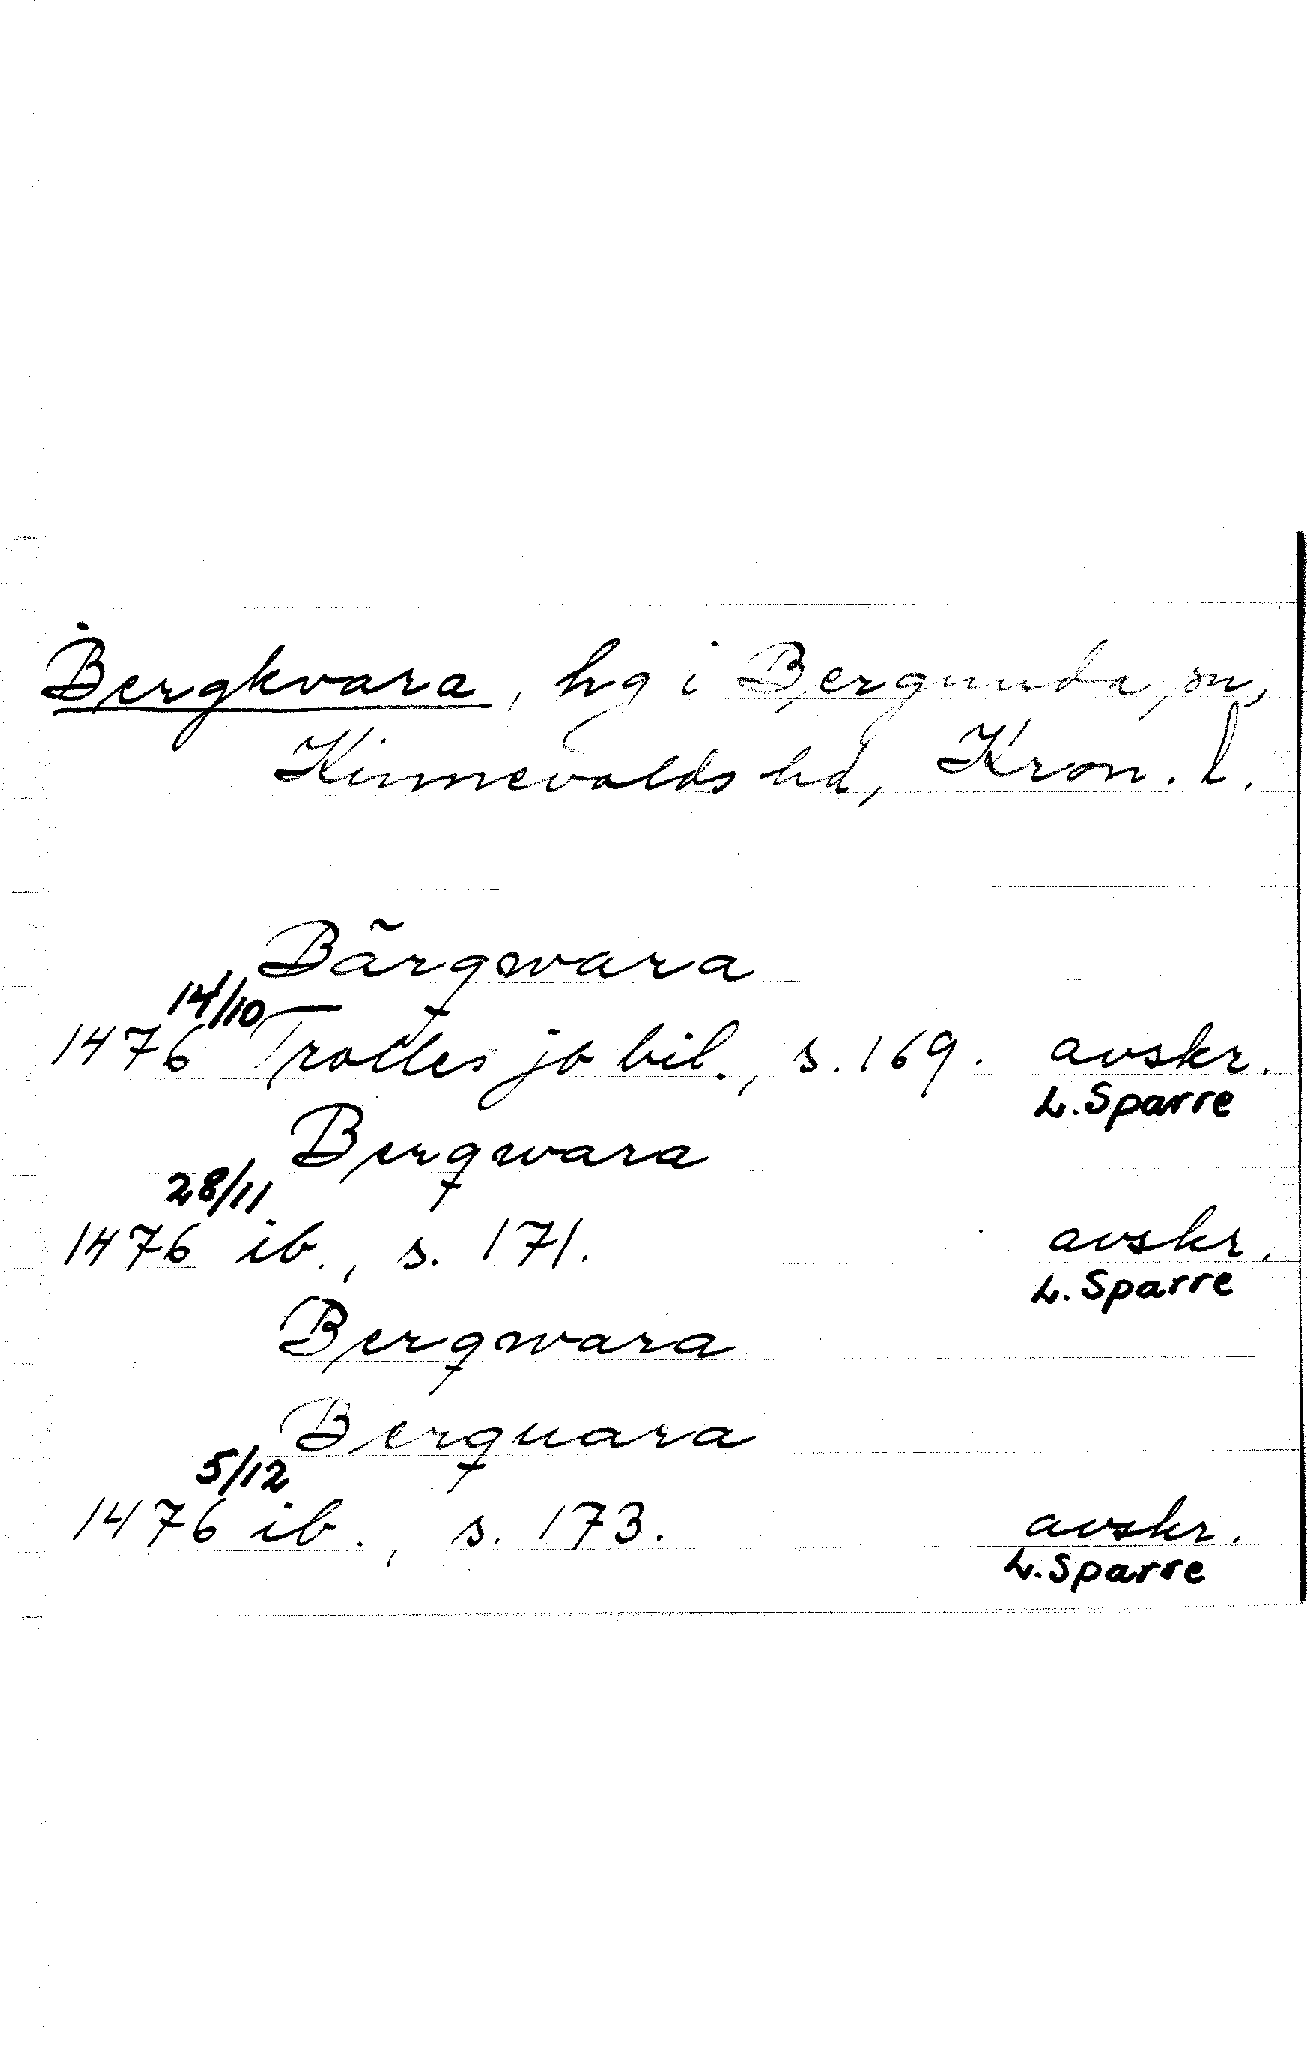 Bergkvara, hg i Bergunda sn,
Kinnevalds hd, Kron. l.
Bärqwara
14/10
1476 Trolles jb bil., s. 169. avskr.
L. Sparre
Berqwara
28/11
1476 ib., s. 171. avskr.
L. Sparre
Berqwara
Berquara
5/12
1476 ib., s. 173. avskr.
L. Sparre